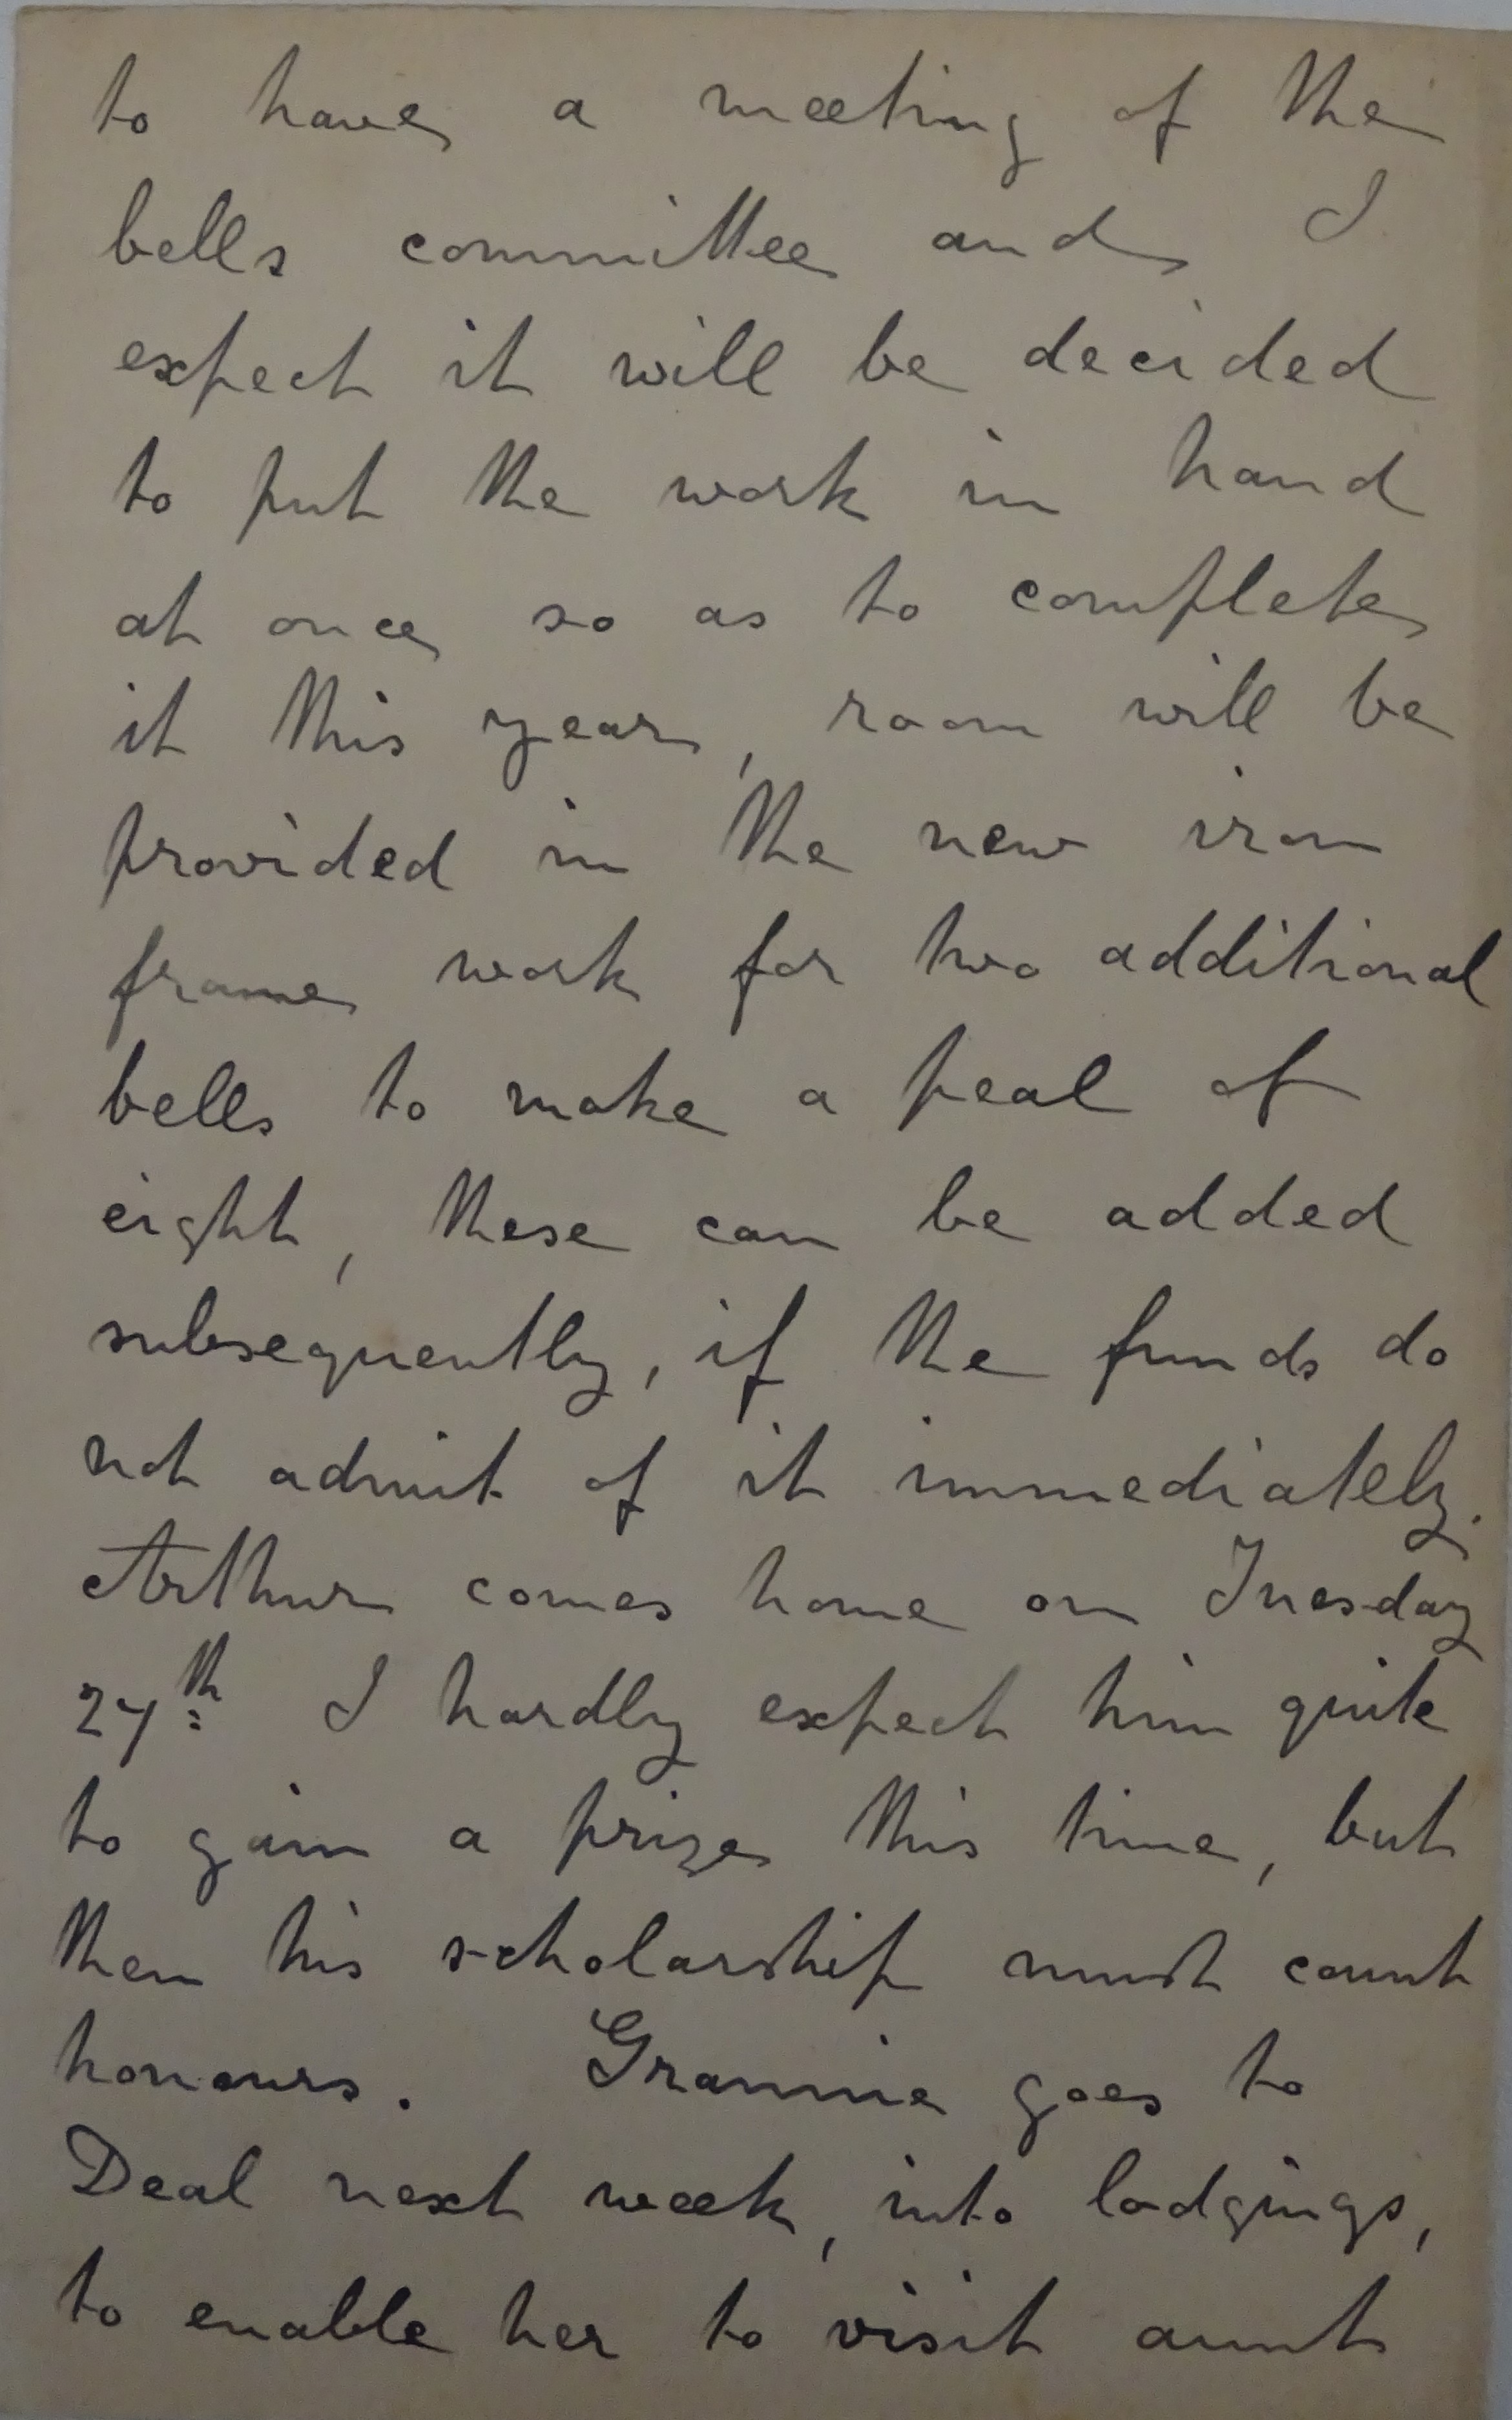 to have a meeting of the
bells committee and I
expect it will be decided
to put the work in hand
at once so as to complete
it this year, room will be
provided in the new iron
frame work for two additional
bells to make a peal of
eight, these can be added
subsequently, if the funds do
not admit of it immediately.
Arthur comes home on Tuesday
27th I hardly expect him quite
to gain a prize this time, but
then his scholarship must count
honours. Grannie goes to
Deal next week, into lodgings,
to enable her to visit aunt